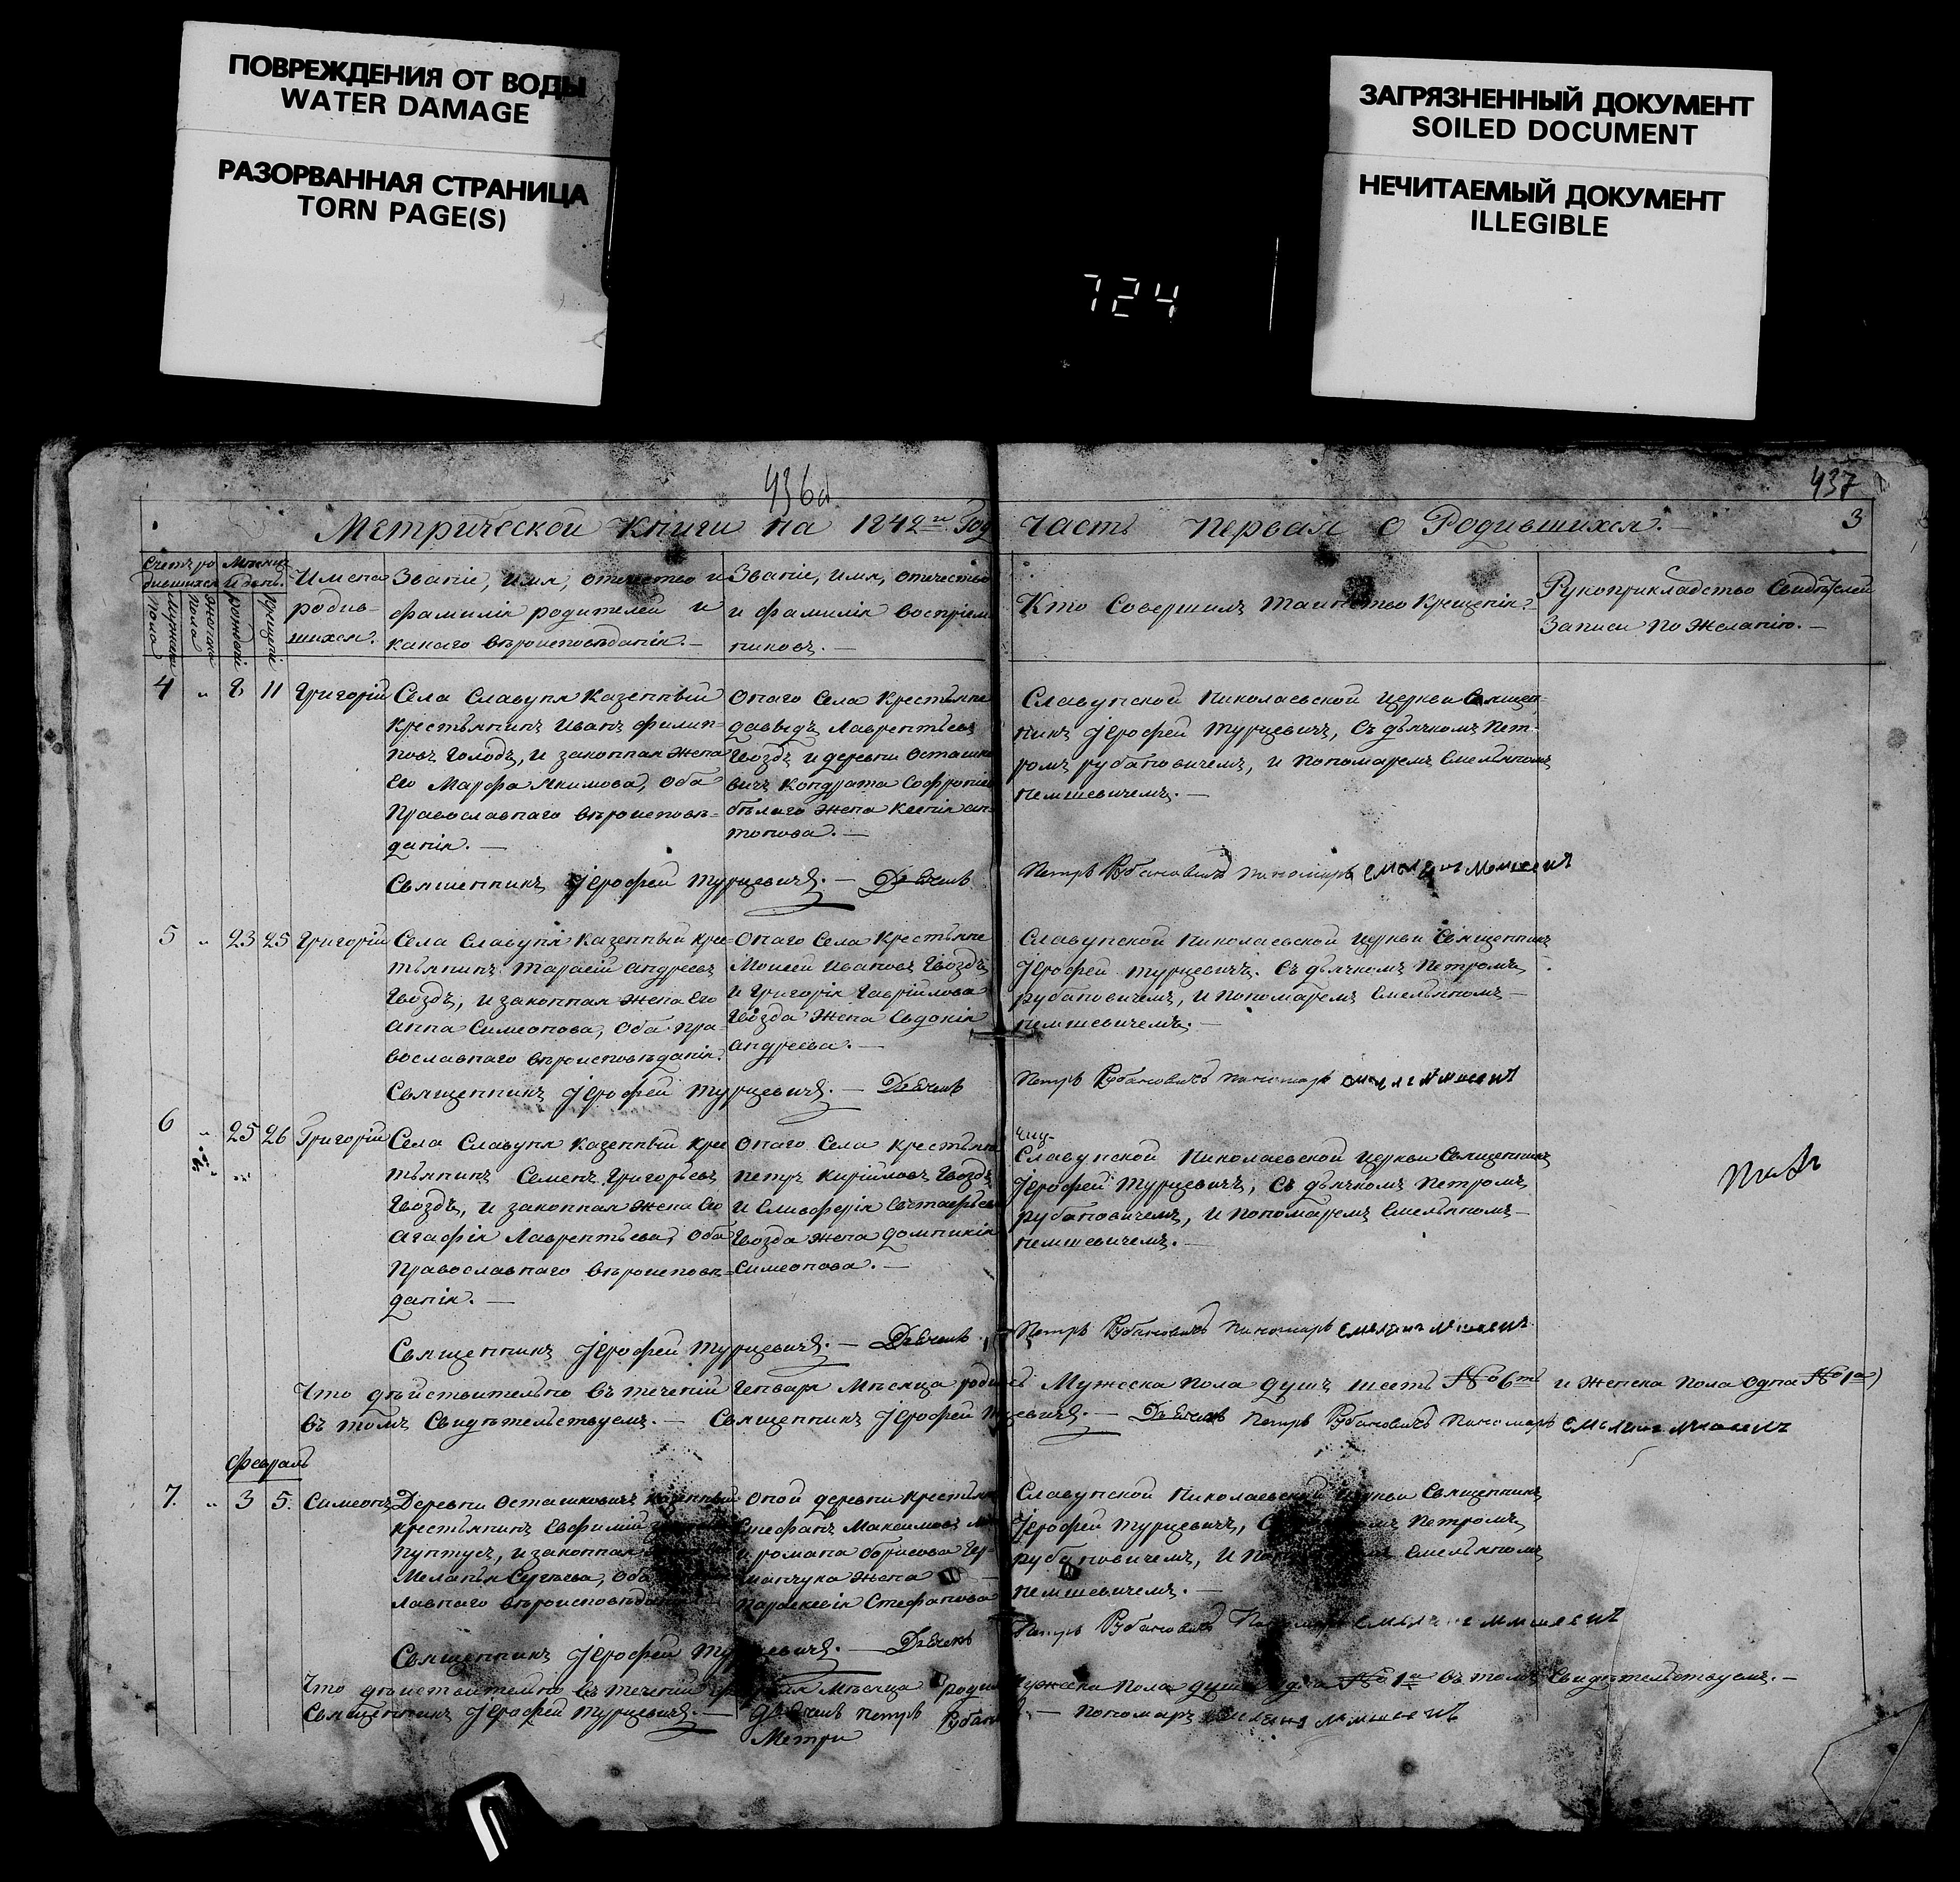 ПОВРЕЖДЕНИЯ ОТ ВОДЫ
WATER DAMAGE
РАЗОРВАННАЯ СТРАНИЦА
TORN PAGE(S)
ЗАГРЯЗНЕННЫЙ ДОКУМЕНТ
SOILED DOCUMENT
НЕЧИТАЕМЫЙ ДОКУМЕНТ
ILLEGIBLE
724
436
437
Метрической книги на 1842й Год Часть первая о Родившихся.
3
Счетъ ро Мѣсяцъ
дившихся и день.
Мужеска пола
Женска пола
рожденія
крещенія
Имена
родив-
шихся.
Званіе, имя, отечество и
фамилія родителей и
какаго вѣроисповѣданія.
Званіе, имя, отечество
и фамилія воспріем
никовъ.
Кто совершилъ таинство крещенія?
Рукоприкладство Свидѣтелей
Записи по желанію.
4 " 8 11 Григорій
Села Славупя казенный
крестьянинъ Иванъ филип-
повъ Голодъ, и законная жена
Его Марфа Якимова, Оба
Православнаго вѣроисповѣ-
данія.
Онаго Села Крестьяне
давыдъ Лаврентьевъ
Гвоздь и деревни Осташко
вичъ Кондрата Софроніе
бѣлаго жена Ксенія ан-
тонова.
Славупской Николаевской церкви Священ-
никъ Іерофей Турцевичъ, Съ дьячкомъ Пет-
ромъ рубановичемъ, и Пономаремъ Емельяномъ
немшевичемъ.
Священникъ Іерофей Турцевичъ. Дьячекъ
Петръ Рубановичъ пономарь
5 " 23 25 Григорій
Села Славупя казенный крес-
тьянинъ Тарасій андреевъ
Гвоздь, и законная жена Его
анна Симеонова, Оба пра-
вославнаго вѣроисповѣданія.
Онаго Села Крестьяне
Моисей Ивановъ Гвоздь
и Григорія Гавріилова
Гвозда жена Евдокія
андреева.
Славупской Николаевской церкви Священникъ
Іерофей Турцевичъ. Съ дьячкомъ Петромъ
рубановичемъ, и Пономаремъ Емельяномъ
немшевичемъ.
Священникъ Іерофей Турцевичъ. Дьячекъ
Петръ Рубановичъ пономарь
6 " 25 26 Григорій
Села Славупя казенный крес
тьянинъ Семенъ Григорьевъ
Гвоздь, и законная жена Его
агафія Лаврентьева, Оба
Православнаго вѣроисповѣ-
данія.
Онаго Села крестьяне
петръ Кириловъ Гвоздь
и Елисферія
Гвозда жена домникія
Симеонова.
Славупской Николаевской церкви Священникъ
Іерофей Турцевичъ, Съ дьячкомъ Петромъ
рубановичемъ, и Пономаремъ Емельяномъ
немшевичемъ.
Священникъ Іерофей Турцевичъ. Дьячекъ
Петръ Рубановичъ пономарь
Что дѣйствительно въ теченіи Генваря Мѣсяца Мужеска пола душъ шесть № 6ть и женска пола одна № 1а)
въ томъ Свидѣтельствуемъ. Священникъ Іерофей Дьячекъ Петръ Рубановичъ пономарь
Февраль
7. " 3 5. Симеонъ
Деревни Осташковичъ казенный
крестьянинъ Евфимій
пунтусъ, и законная
Меланья Сергѣева, Оба
лавнаго вѣроисповѣданія
Оной деревни Крестьяне
Стефанъ Максимовъ
и романа борисова Гер-
манчука жена
Параскевія Стефанова
Славупской Николаевской церкви Священникъ
Іерофей Турцевичъ, Петромъ
рубановичемъ, и Емельяномъ
немшевичемъ.
Священникъ Іерофей Дьячекъ
Петръ Рубановичъ
Что дѣйствительно въ теченіи Мѣсяца Мужеска пола № 1а въ томъ Свидѣтельствуемъ.
Священникъ Іерофей Турцевичъ. Дьячекъ Петръ пономарь
Метри